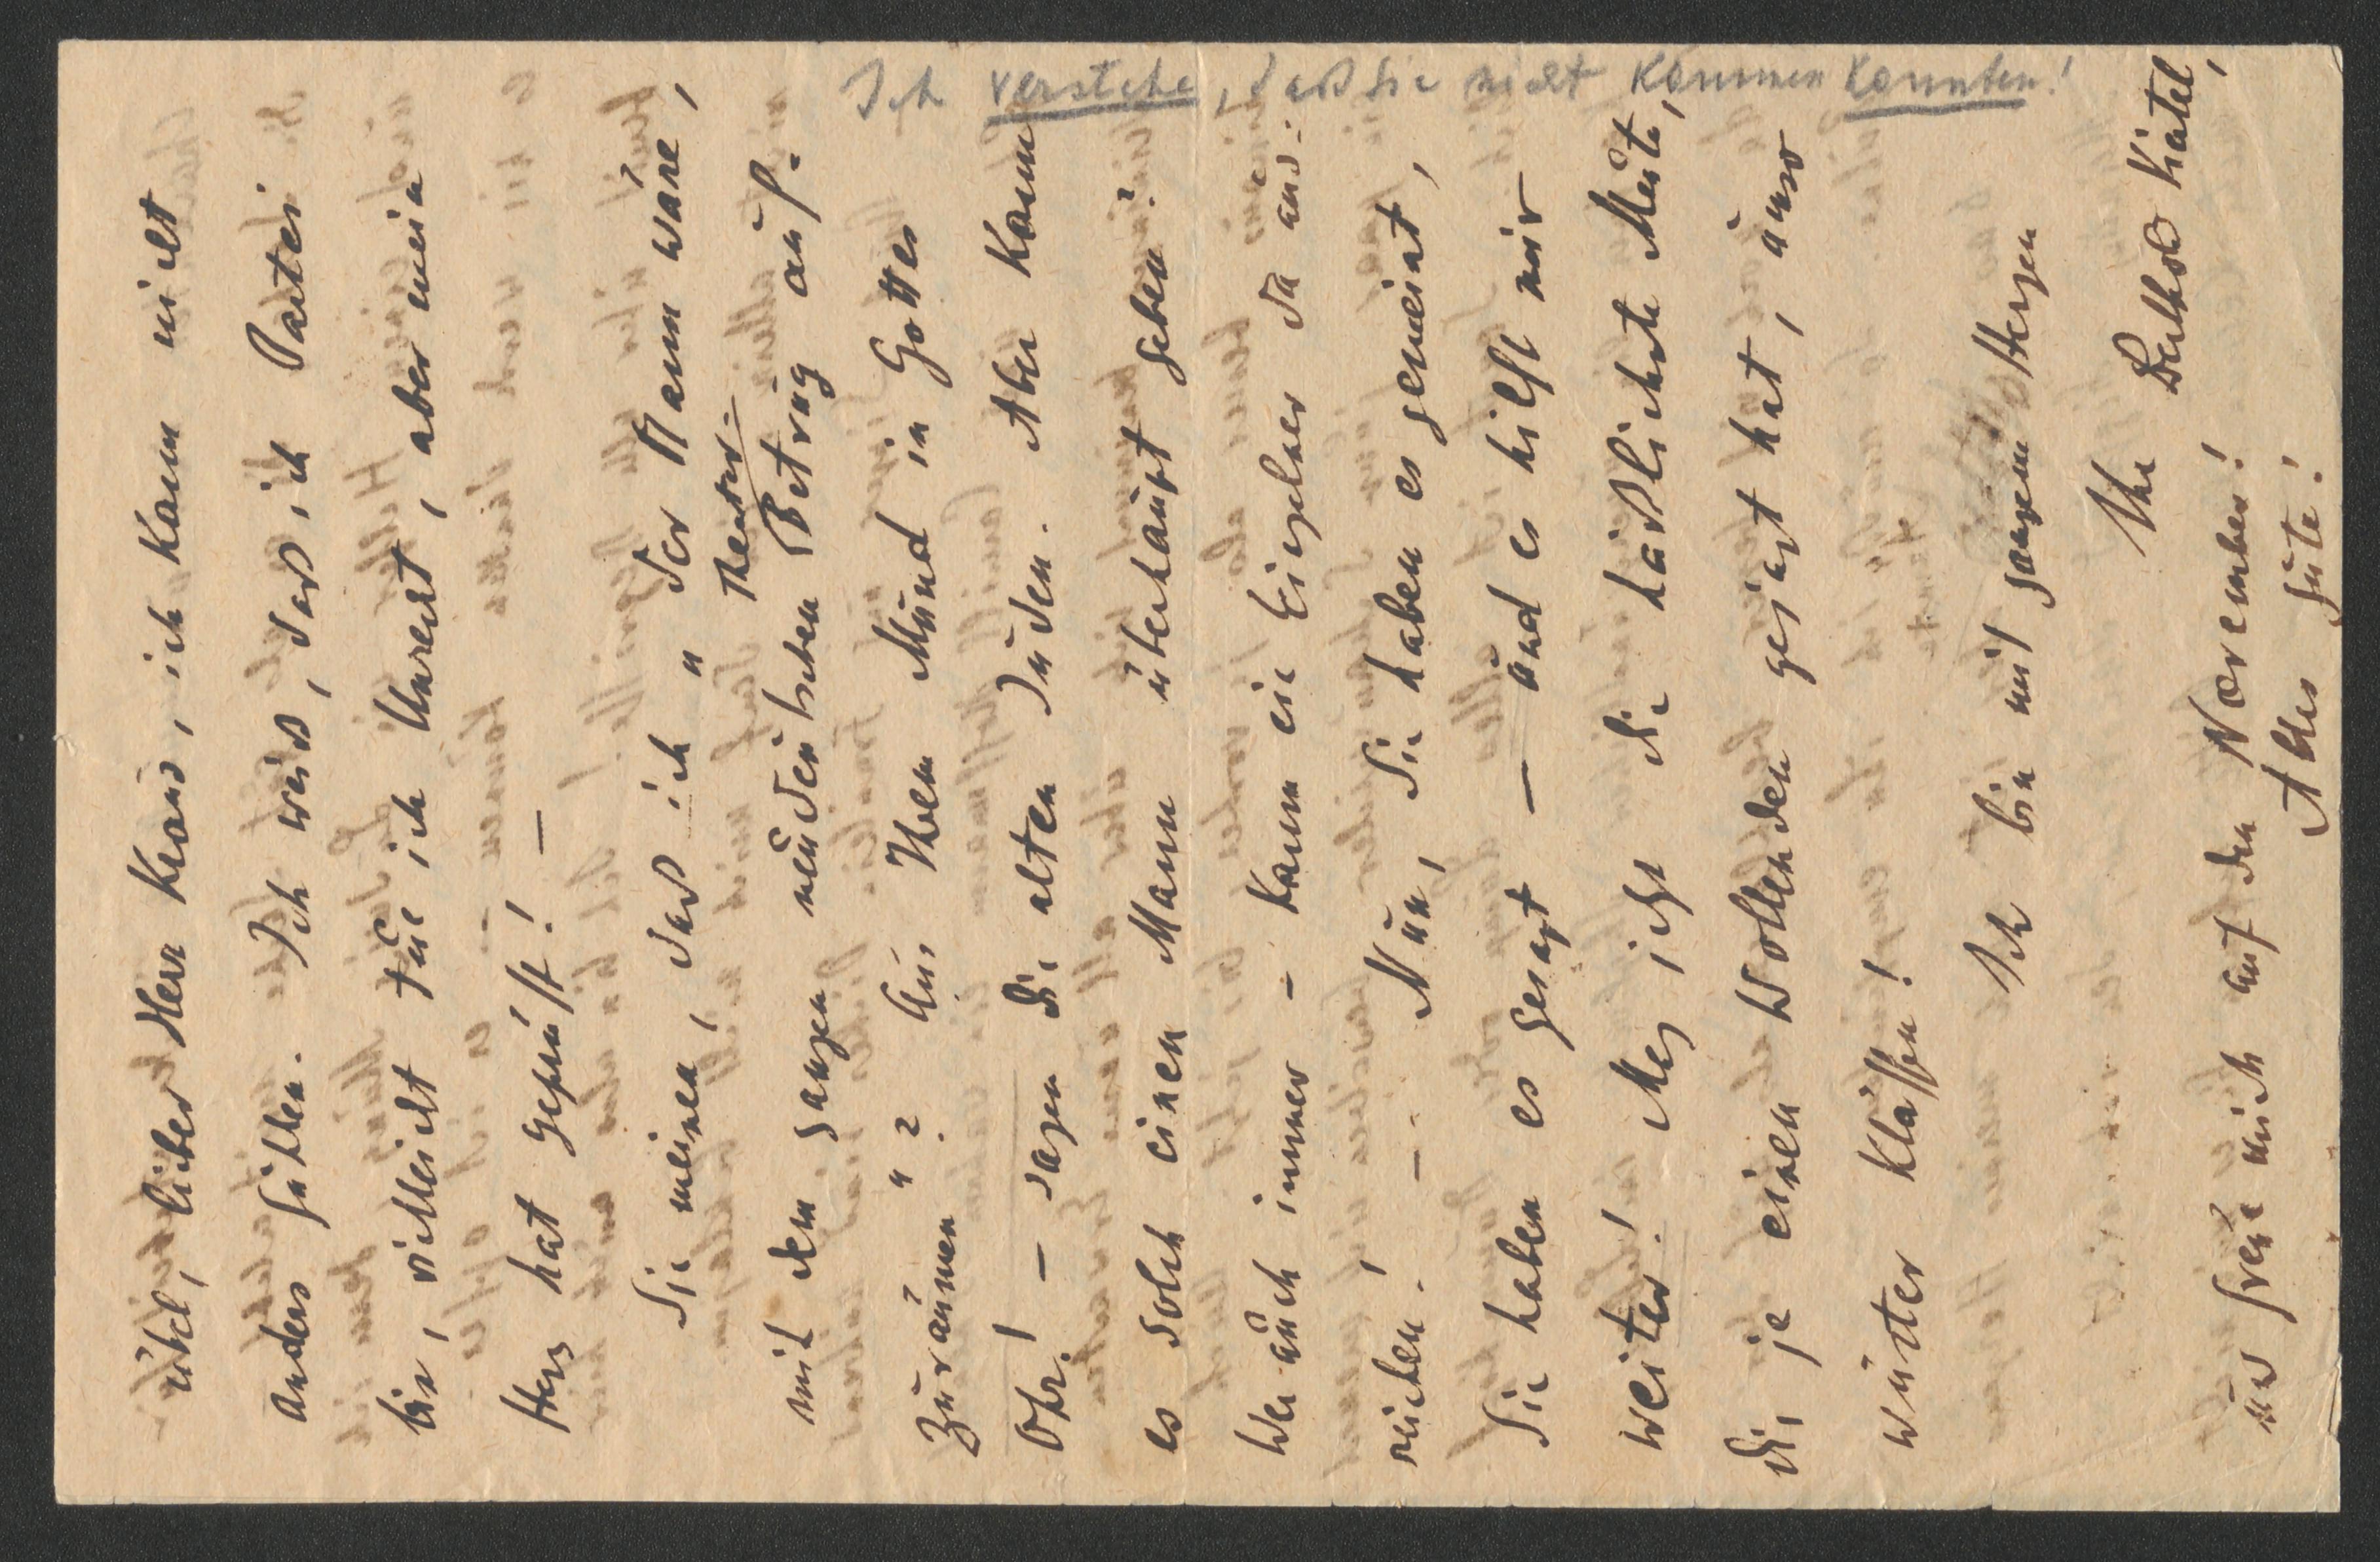 übel, lieber Herr Kraus, ich kann nicht
anders fühlen. Ich weiss, dass ich Partei
bin, vielleicht tue ich Unrecht, aber mein
Herz hat geprüft! —
Sie meinen, dass ich „der Mann wäre,
mit dem ganzen neudeutschen Theater-
Betrug auf-
zuräumen"? Aus Ihrem Mund in Gottes
Ohr! — sagen die alten Juden. Aber kann
es solch einen Mann überhaupt geben?
Wer auch immer – kann ein Einzelner da aus-
reichen! – – Nun, Sie haben es gemeint,
Sie haben es gesagt — und es hilft mir
weiter! Mag jetzt die hässlichste Meute,
die je einen Wollenden gejagt hat, umso
wüster kläffen!
Ich bin mit ganzem Herzen
Ihr Berthold Viertel,
und freue mich auf den November!
Alles Gute!
Ich verstehe, dass Sie nicht kommen konnten!